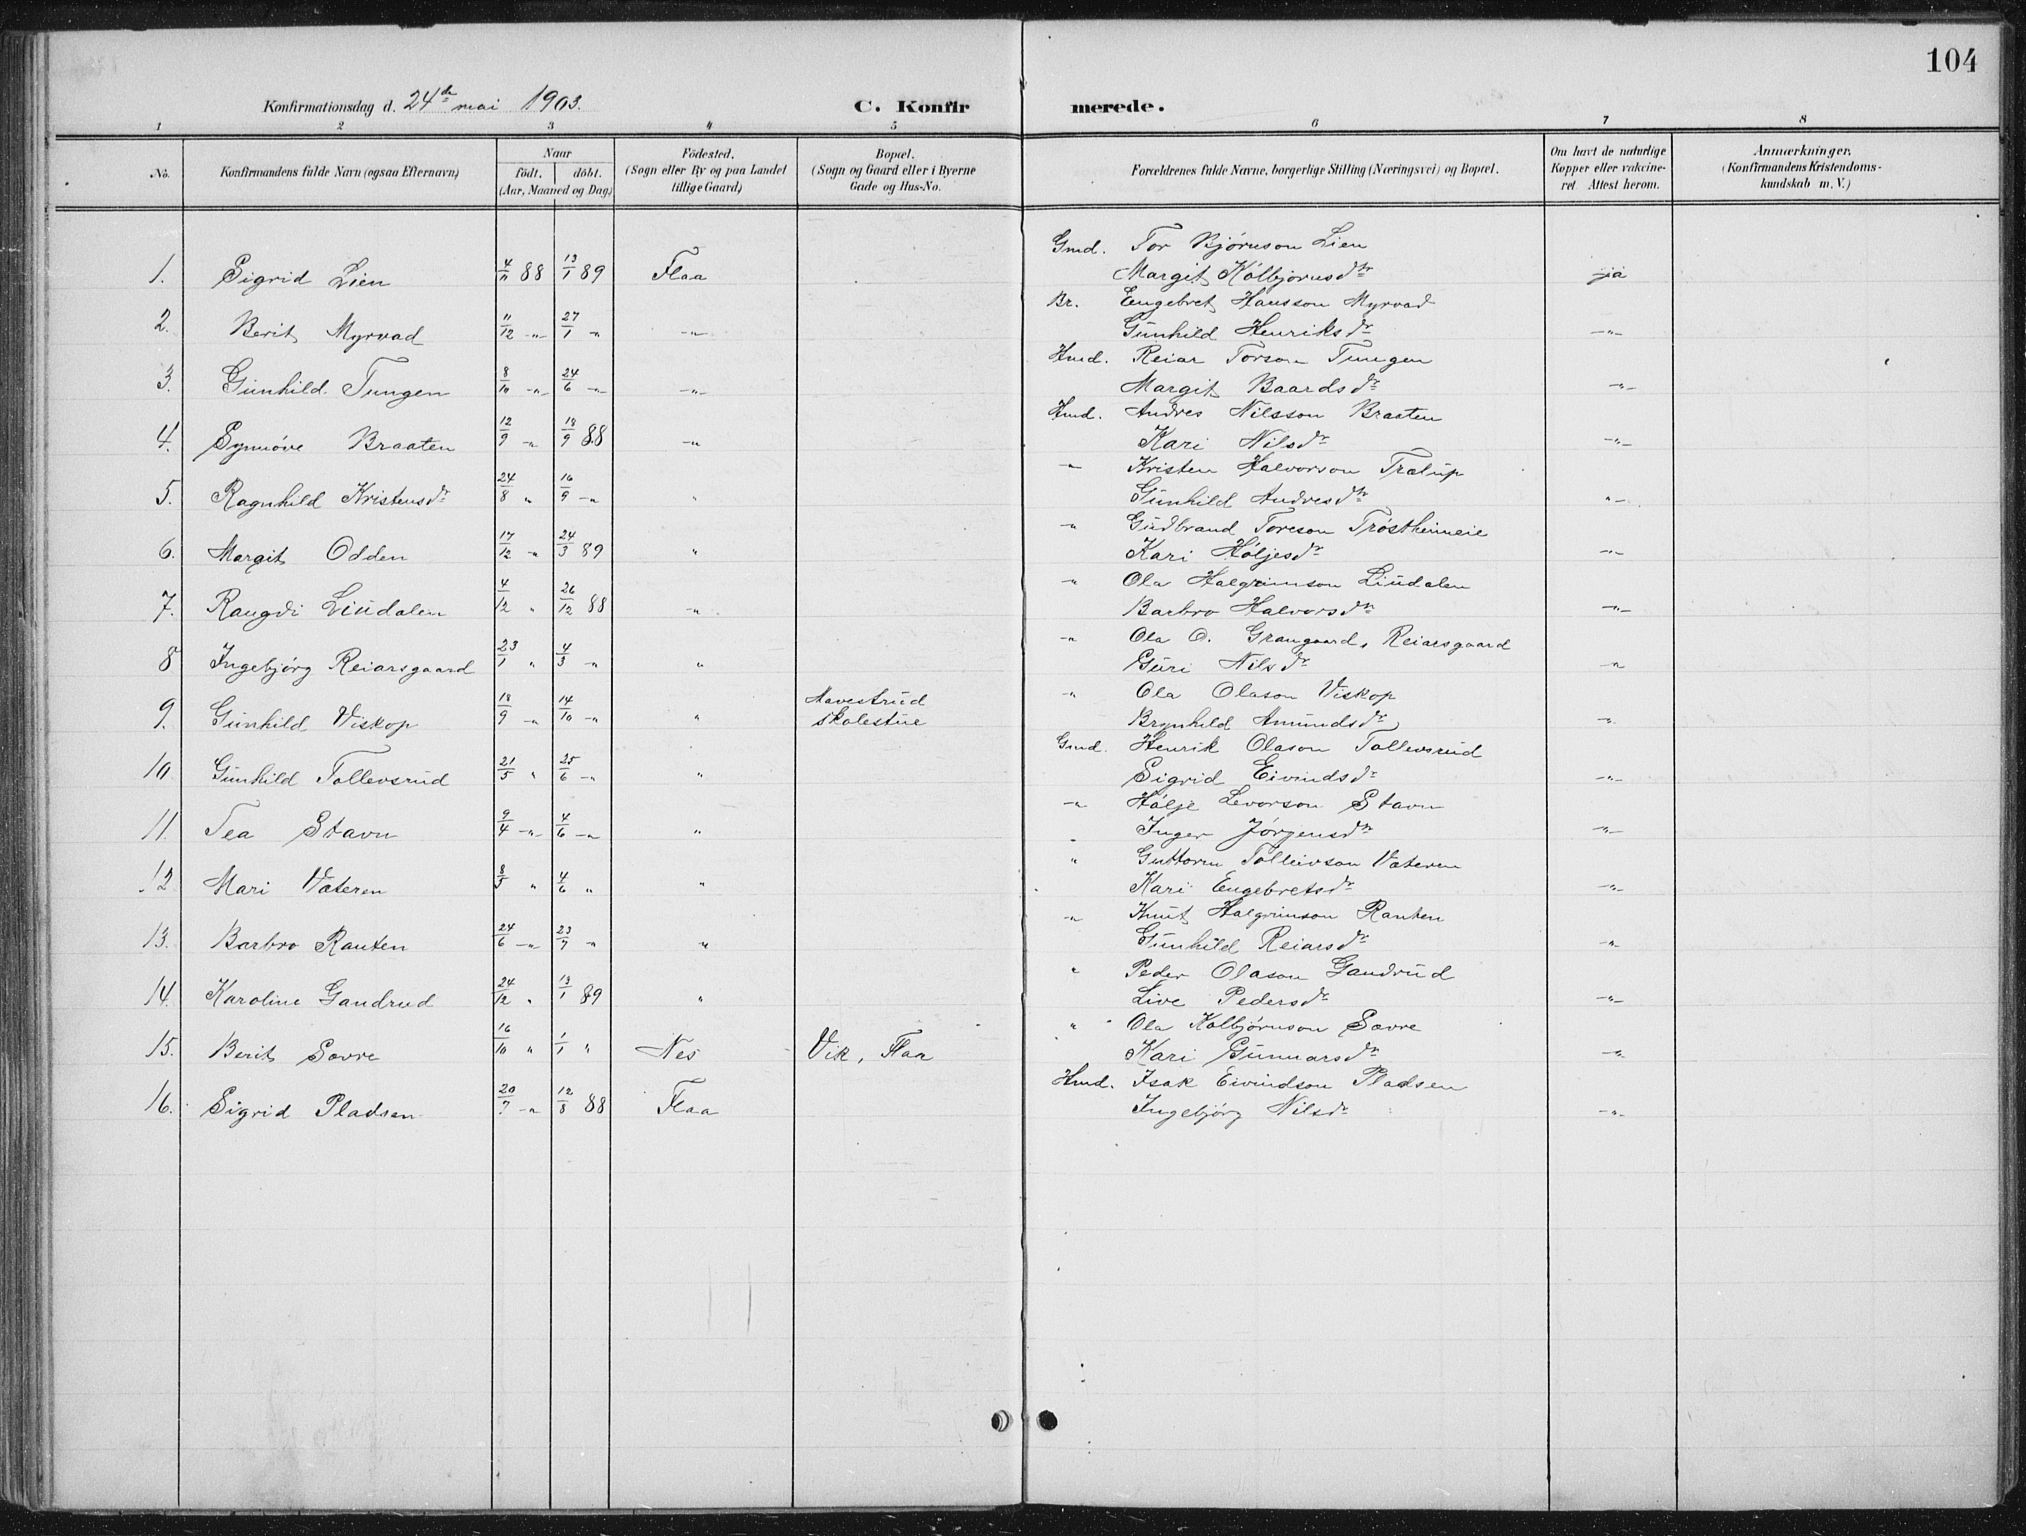 104
Konfirmationsdag d. 24de mai 1903. C. Konfirmerede.
1 2 3 4 5 6 7 8
No. Konfirmandens fulde Navn (ogsaa Efternavn) Naar födt. döbt. (Aar, Maaned og Dag) Födested. (Sogn eller By og paa Landet tillige Gaard) Bopæl. (Sogn og Gaard eller i Byerne Gade og Hus-No. Forældrenes fulde Navne, borgerlige Stilling (Næringsvei) og Bopæl. Om havt de naturlige Kopper eller vakcineret. Attest herom. Anmærkninger. (Konfirmandens Kristendomskundskab m. V.)
Gmd. Tor Bjørnson Lien
1. Sigrid Lien 4/11 88 13/1 89 Flaa Margit Kolbjørnsdtr ja
Br. Engebret Hansson Myrvad
2. Berit Myrvad 11/12 -"- 27/1 " -"- Gunhild Henriksdr -"-
Hmd. Reiar Torson Tungen
3. Gunhild Tungen 8/10 -"- 24/6 -"- -"- Margit Baardsdr -"-
Hmd. Andres Nilsson Braaten
4. Synnøve Braaten 12/9 -"- 18/9 88 -"- Kari Nilsdr -"-
-"- Kristen Halvorson Trælup
5. Ragnhild Kristensdr 24/8 " 16/9 -"- " Gunhild Andresdtr "-
-"- Gudbrand Toreson Trøstheimeie
6. Margit Odden 17/12 -"- 24/3 89 " Kari Høljesdr -"-
" Ola Halgrimson Liudalen
7. Rangdi Liudalen 4/12 " 26/12 88 -"- Barbro Halvorsdtr -"-
-"- Ola O. Grangaard, Reiarsgaard
8 Ingebjørg Reiarsgaard 23/1 " 4/3 -"- " Guri Nilsdr "
" Ola Olason Viskop
9. Gunhild Viskop 18/9 -"- 14/10 -"- " Havestrud skolestue Brynhild Amundsdr -"-
Gmd. Henrik Olason Tollevsrud
10. Gunhild Tollevsrud 21/5 " 25/6 -"- " Sigrid Eivindsdr -"-
-"- Hølje Levorson Stavn
11. Tea Stavn 9/4 -"- 4/6 -"- " Inger Jørgensdtr -"-
" Guttorm Tolleivson Væteren
12 Mari Væteren 8/5 " 4/6 " " Kari Engebretsdr -"-
-"- Knut Halgrimson Ranten
13. Barbro Ranten 24/6 -"- 23/7 " " Gunhild Reiarsdr -"-
" Peder Olason Gandrud
14. Karoline Gandrud 24/12 " 13/1 89 " Live Pedersdr -"-
" Ola Kolbjørnson Sevre
15. Berit Sevre 16/10 " 1/1 " Nes Vik, Flaa Kari Gunnarsdtr -"-
Hmd. Isak Eivindson Pladsen
16. Sigrid Pladsen 20/7 -"- 12/8 88 Flaa Ingebjørg Nilsdr -"-